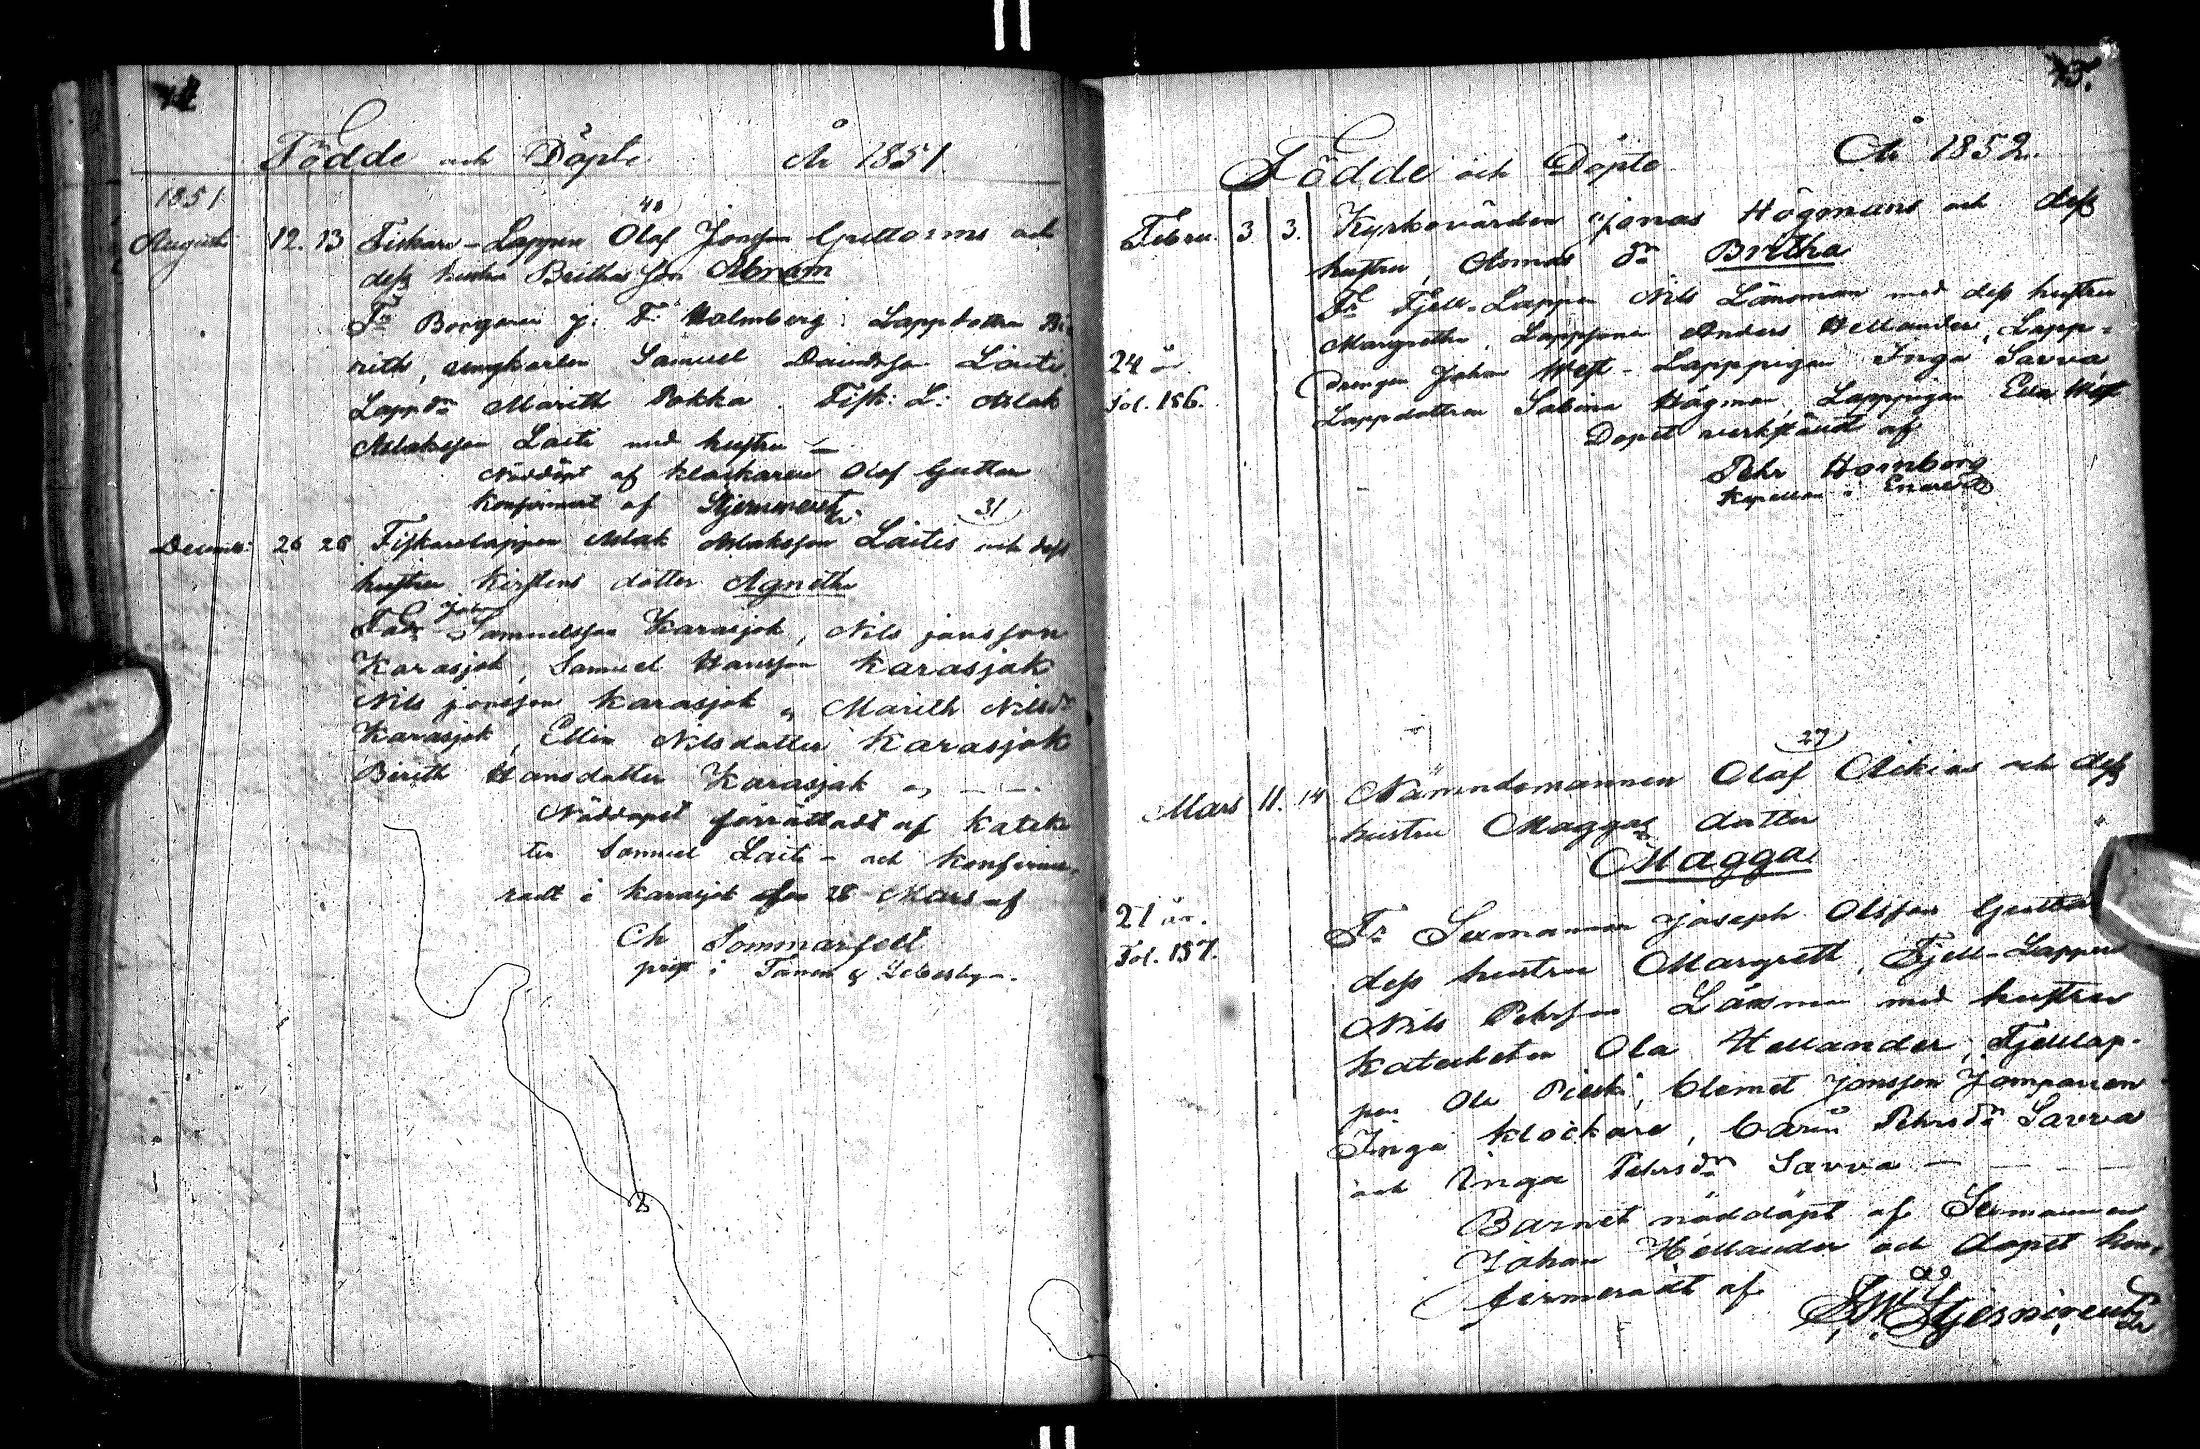 14
Födde och Döpte År 1851.
1851
40
Augusti 12. 13 Fiskare-Lappen Olof Jonsson Guttorms och
dess hustru Brithas son Abram
Fr Borgaren J. F. Malmberg. Lappdottren Bi-
rith, ungkarlen Samuel Davidsson Laiti,
Lappdn Marith Pokka. Fisk: L: Aslak
Aslaksson Laiti med hustru –
Nöddöpt af klockaren Olof Guttorm
Konfirmert af Stjerncreutz
31
Decemb: 26 28 Fiskarelappen Aslak Aslaksson Laitis och dess
hustru Kirstens dotter Agnetha
Johan
Fadr Samuelsson Karasjok, Nils jonsson
Karasjok, Samuel Hansson Karasjok
Nils jonsson Karasjok, Marith Nilsdr
Karasjok, Ellin Nilsdotter Karasjok
Birith Hansdotter Karasjok
Nöddopet förrättadt af Kateke
ten Samuel Laiti – och konfirme-
radt i Karasjok den 28 Mars af
Ch Sommarfelt
prest i Tanen & Lebesby.
15.
Födde och Döpte År 1852.
Febru. 3 3. Kyrkovärden Jonas Högmans och dess
hustru, Annas dr Britha
Fr Fjell-Lappen Nils Länsman med dess hustru
Margretha, Lappsonen Anders Hellander, Lapp-
24 år. drengen Johan West – Lapppigan Inga Savva
Fol. 156. Lappdottren Sabina Högman, Lappigan Eva West
Dopet verkstäldt af
Pehr Hornborg
Kapellan i Enare
27
Mars 11. 14 Nämndemannen Olof Aikias och dess
hustru Maggas dotter
Magga
21 år. Fr Sexmannen Joseph Olsson Guttorm
Fol. 157. dess hustru Margrett, Fjell-Lappen
Nils Pehrsson Länsman med hustru
Katecheten Ola Hellander, Fjelllap-
pen Ole Pieski, Clemet Jonsson Jomppanen
Inga Klockare, Carin Pehrsdr Savva
och Inga Pehrsdr Savva –
Barnet nöddöpt af Sexmannen
Johan Hellander och dopet kon-
firmeradt af
Stjerncreutz